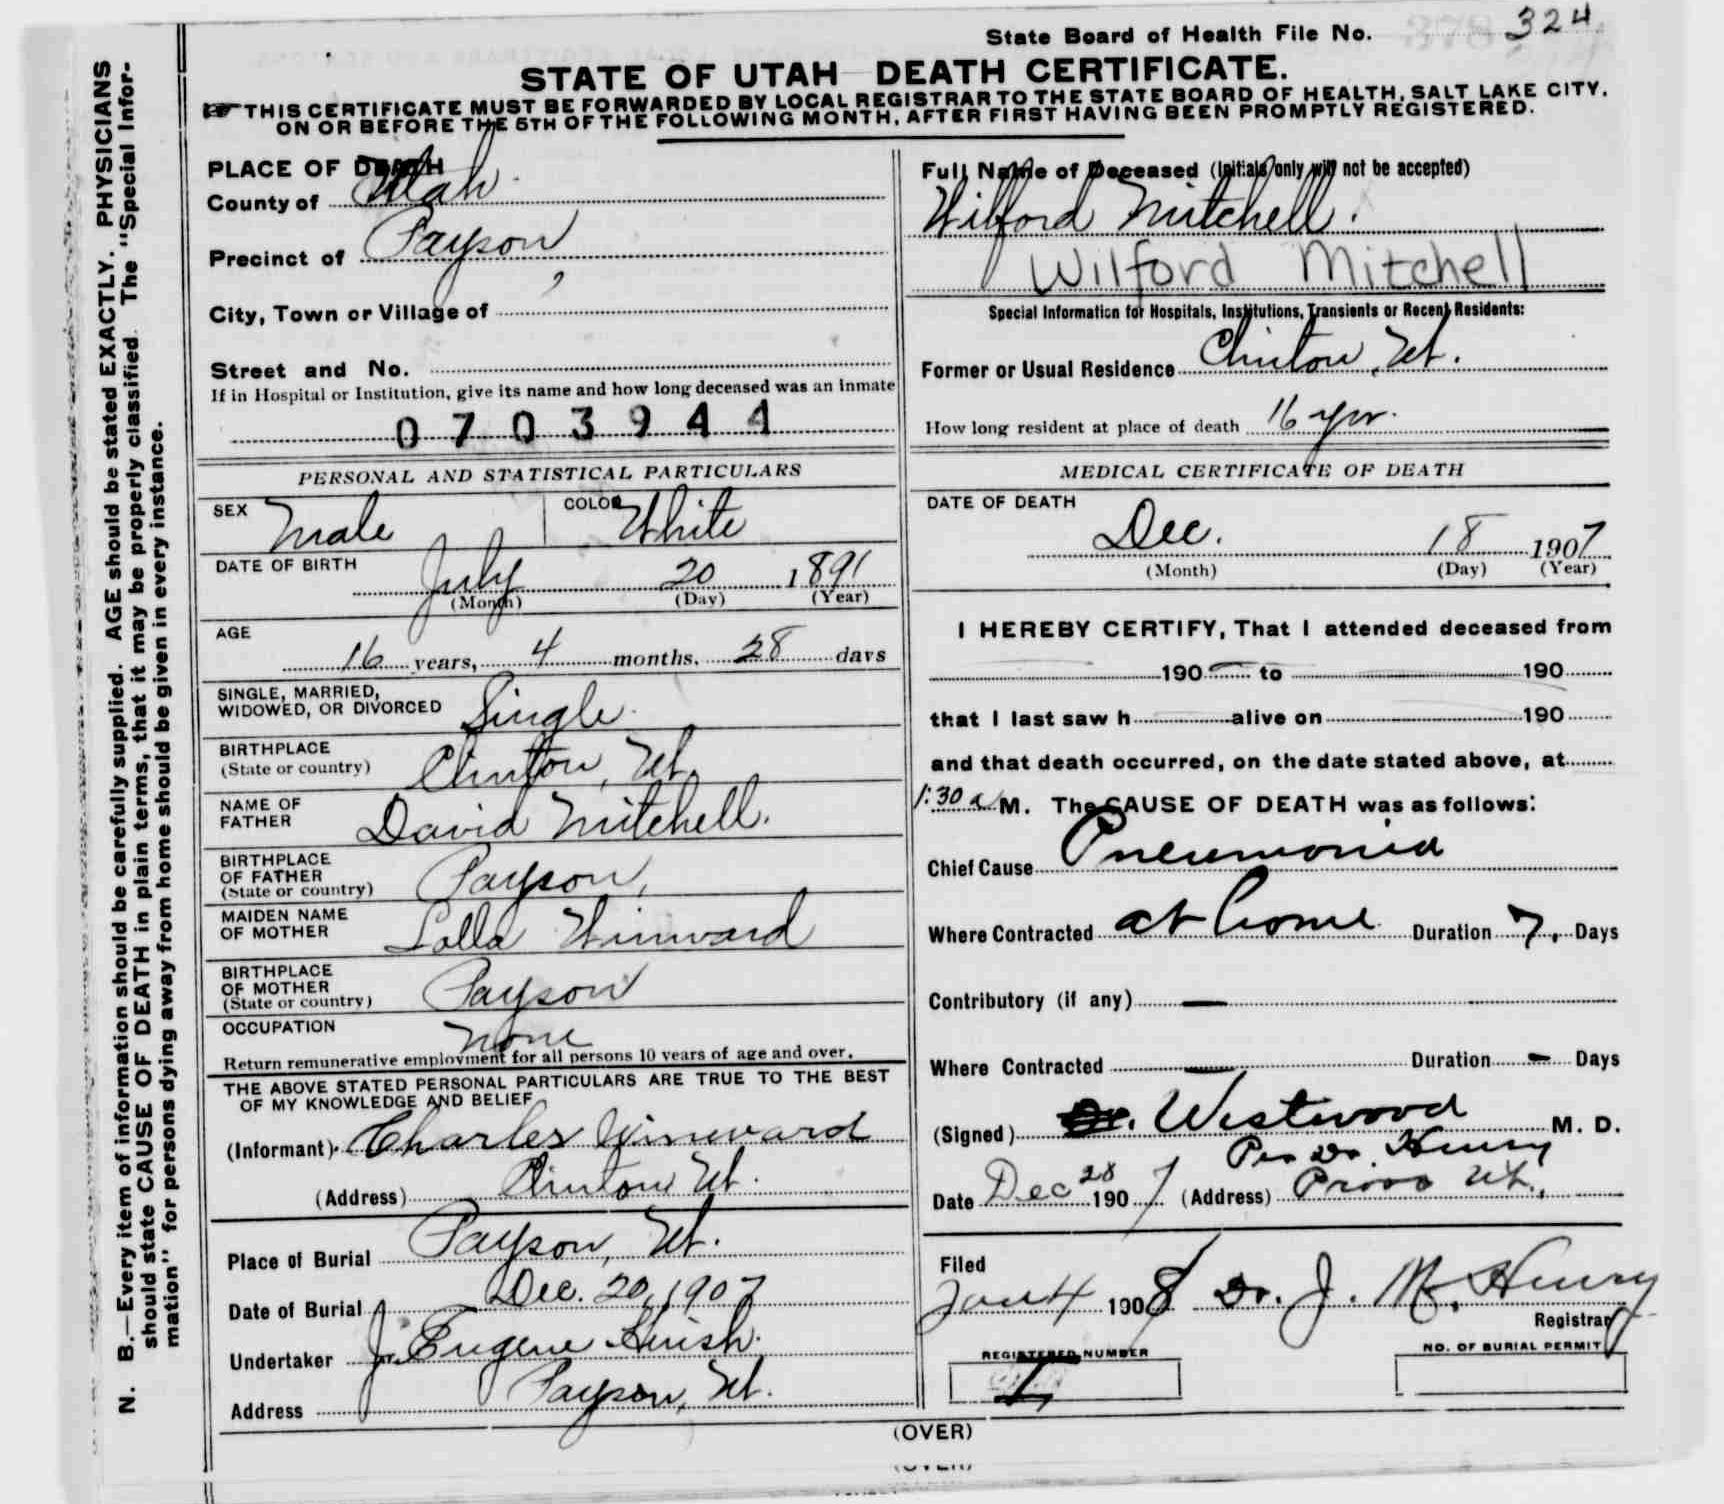 State Board of Health File No. 324
STATE OF UTAH DEATH CERTIFICATE.
THIS CERTIFICATE MUST BE FORWARDED BY LOCAL REGISTRAR TO THE STATE BOARD OF HEALTH, SALT LAKE CITY,
ON OR BEFORE THE 5TH OF THE FOLLOWING MONTH, AFTER FIRST HAVING BEEN PROMPTLY REGISTERED.
N. B.—Every item of information should be carefully supplied. AGE should be stated EXACTLY. PHYSICIANS
should state CAUSE OF DEATH in plain terms, that it may be properly classified. The "Special Infor-
mation" for persons dying away from home should be given in every instance.
PLACE OF DEATH
County of Utah
Precinct of Payson
City, Town or Village of
Street and No.
If in Hospital or Institution, give its name and how long deceased was an inmate
0703944
PERSONAL AND STATISTICAL PARTICULARS
SEX Male COLOR White
DATE OF BIRTH July 20 1891
(Month) (Day) (Year)
AGE
16 years, 4 months, 28 days
SINGLE, MARRIED,
WIDOWED, OR DIVORCED Single
BIRTHPLACE
(State or country) Clinton, Ut.
NAME OF
FATHER David Mitchell.
BIRTHPLACE
OF FATHER
(State or country) Payson,
MAIDEN NAME
OF MOTHER Lolla Winward
BIRTHPLACE
OF MOTHER
(State or country) Payson
OCCUPATION None
Return remunerative employment for all persons 10 years of age and over.
THE ABOVE STATED PERSONAL PARTICULARS ARE TRUE TO THE BEST
OF MY KNOWLEDGE AND BELIEF
(Informant) Charles Winward
(Address) Clinton Ut.
Place of Burial Payson, Ut.
Date of Burial Dec. 20, 1907
Undertaker J. Eugene
Address Payson, Ut.
Full Name of Deceased (Initials only will not be accepted)
Wilford Mitchell.
Wilford Mitchell
Special Information for Hospitals, Institutions, Transients or Recent Residents:
Former or Usual Residence Clinton, Ut.
How long resident at place of death 16 yr.
MEDICAL CERTIFICATE OF DEATH
DATE OF DEATH
Dec. 18 1907
(Month) (Day) (Year)
I HEREBY CERTIFY, That I attended deceased from
190 to 190
that I last saw h alive on 190
and that death occurred, on the date stated above, at
1:30 a M. The CAUSE OF DEATH was as follows:
Chief Cause Pneumonia
Where Contracted at home Duration 7, Days
Contributory (if any) —
Where Contracted — Duration — Days
(Signed) Dr. Westwood M. D.
Per Dr. Henry
Date Dec 28 1907 (Address) Provo Ut.,
Filed
Jan 4 1908 Dr. J. M. Henry
Registrar
REGISTERED NUMBER
NO. OF BURIAL PERMIT
(OVER)